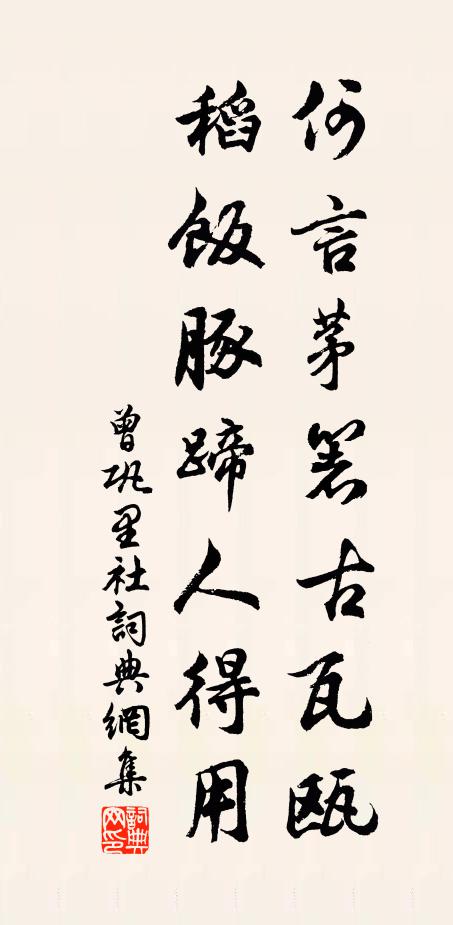 何言茅箸古瓦甌
稻飯豚蹄人得用
曾巩里社詞典網集
詞典网印